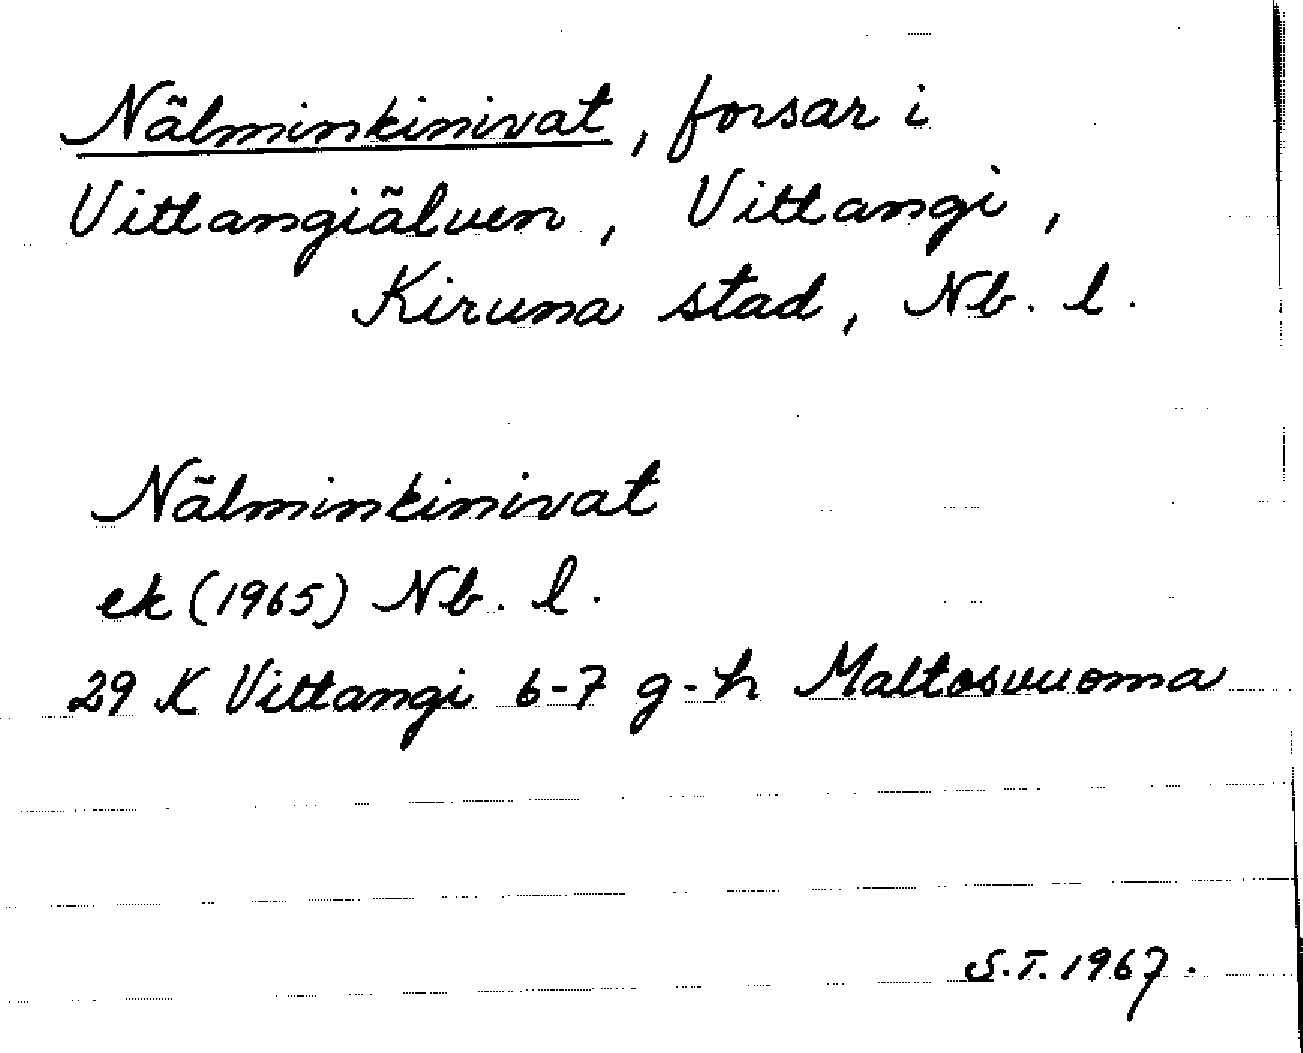 Nälminkinivat, forsar i
Vittangiälven, Vittangi,
Kiruna stad, Nb. l.
Nälminkinivat
ek (1965) Nb. l.
29 K Vittangi 6-7 g-h Maltosvuoma
S.T. 1967.